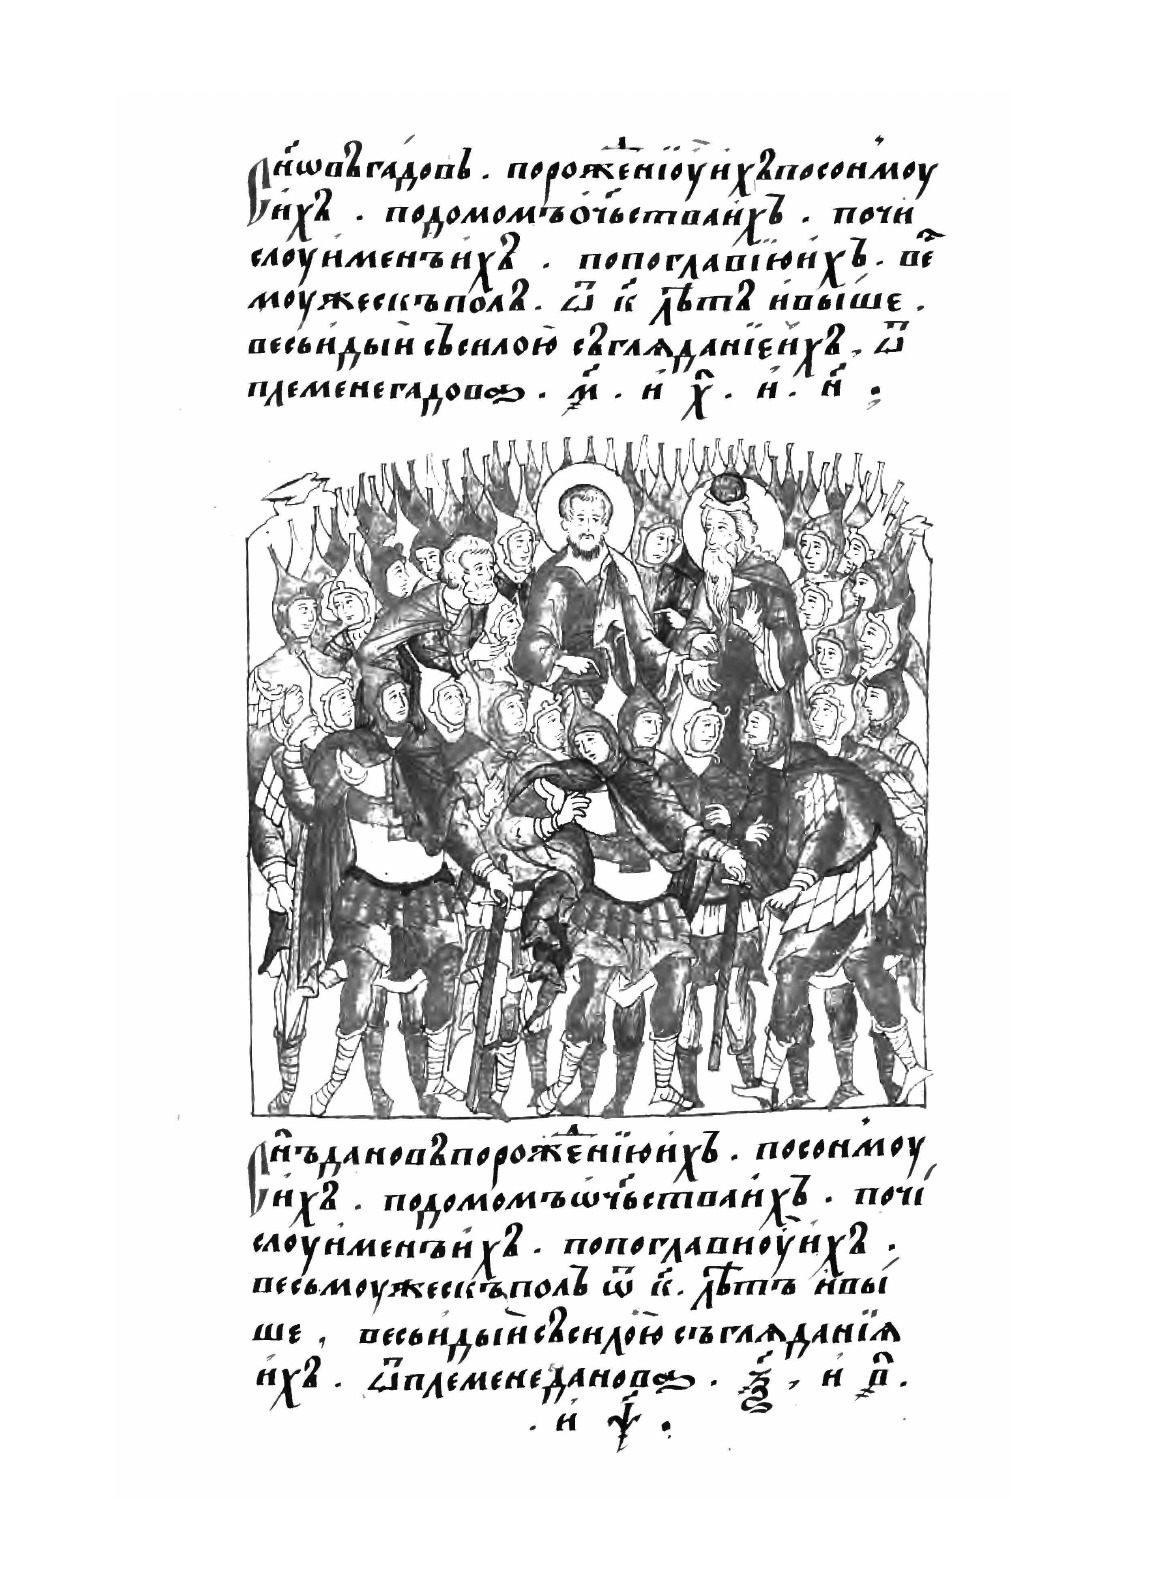 сн҃овъ гадовъ . по роже́нїоу и҆́хъ по сонмоу
и҆́хъ . по домомъ ѻ҆ч҃ьства и҆́хъ . по чи
слоу и҆менъ и҆́хъ . по поглавїю и҆́хъ . ве҃с
моужескъ полъ . ѿ к҃ лѣтъ и҆ вы́ше .
весь и҆ды́й съ си́лою съглѧданїе и҆́хъ , ѿ
племене гадова . м҃ . и҆ х҃ . и҆ . н҃ .
сн҃ъ дановъ по роже́нїю и҆́хъ . по сонмоу
и҆́хъ . по домомъ ѡ҆ч҃ьства и҆́хъ . по чї
слоу и҆менъ и҆́хъ . по поглавноу и҆́хъ .
весь моужескъ полъ ѿ к҃ . лѣтъ и҆ вы́
ше , весь и҆ды́й съ си́лою съглѧданїѧ
и҆́хъ . ѿ племене данова . ѯ҃ , и҆ в҃ .
. и҆ ѱ҃ .